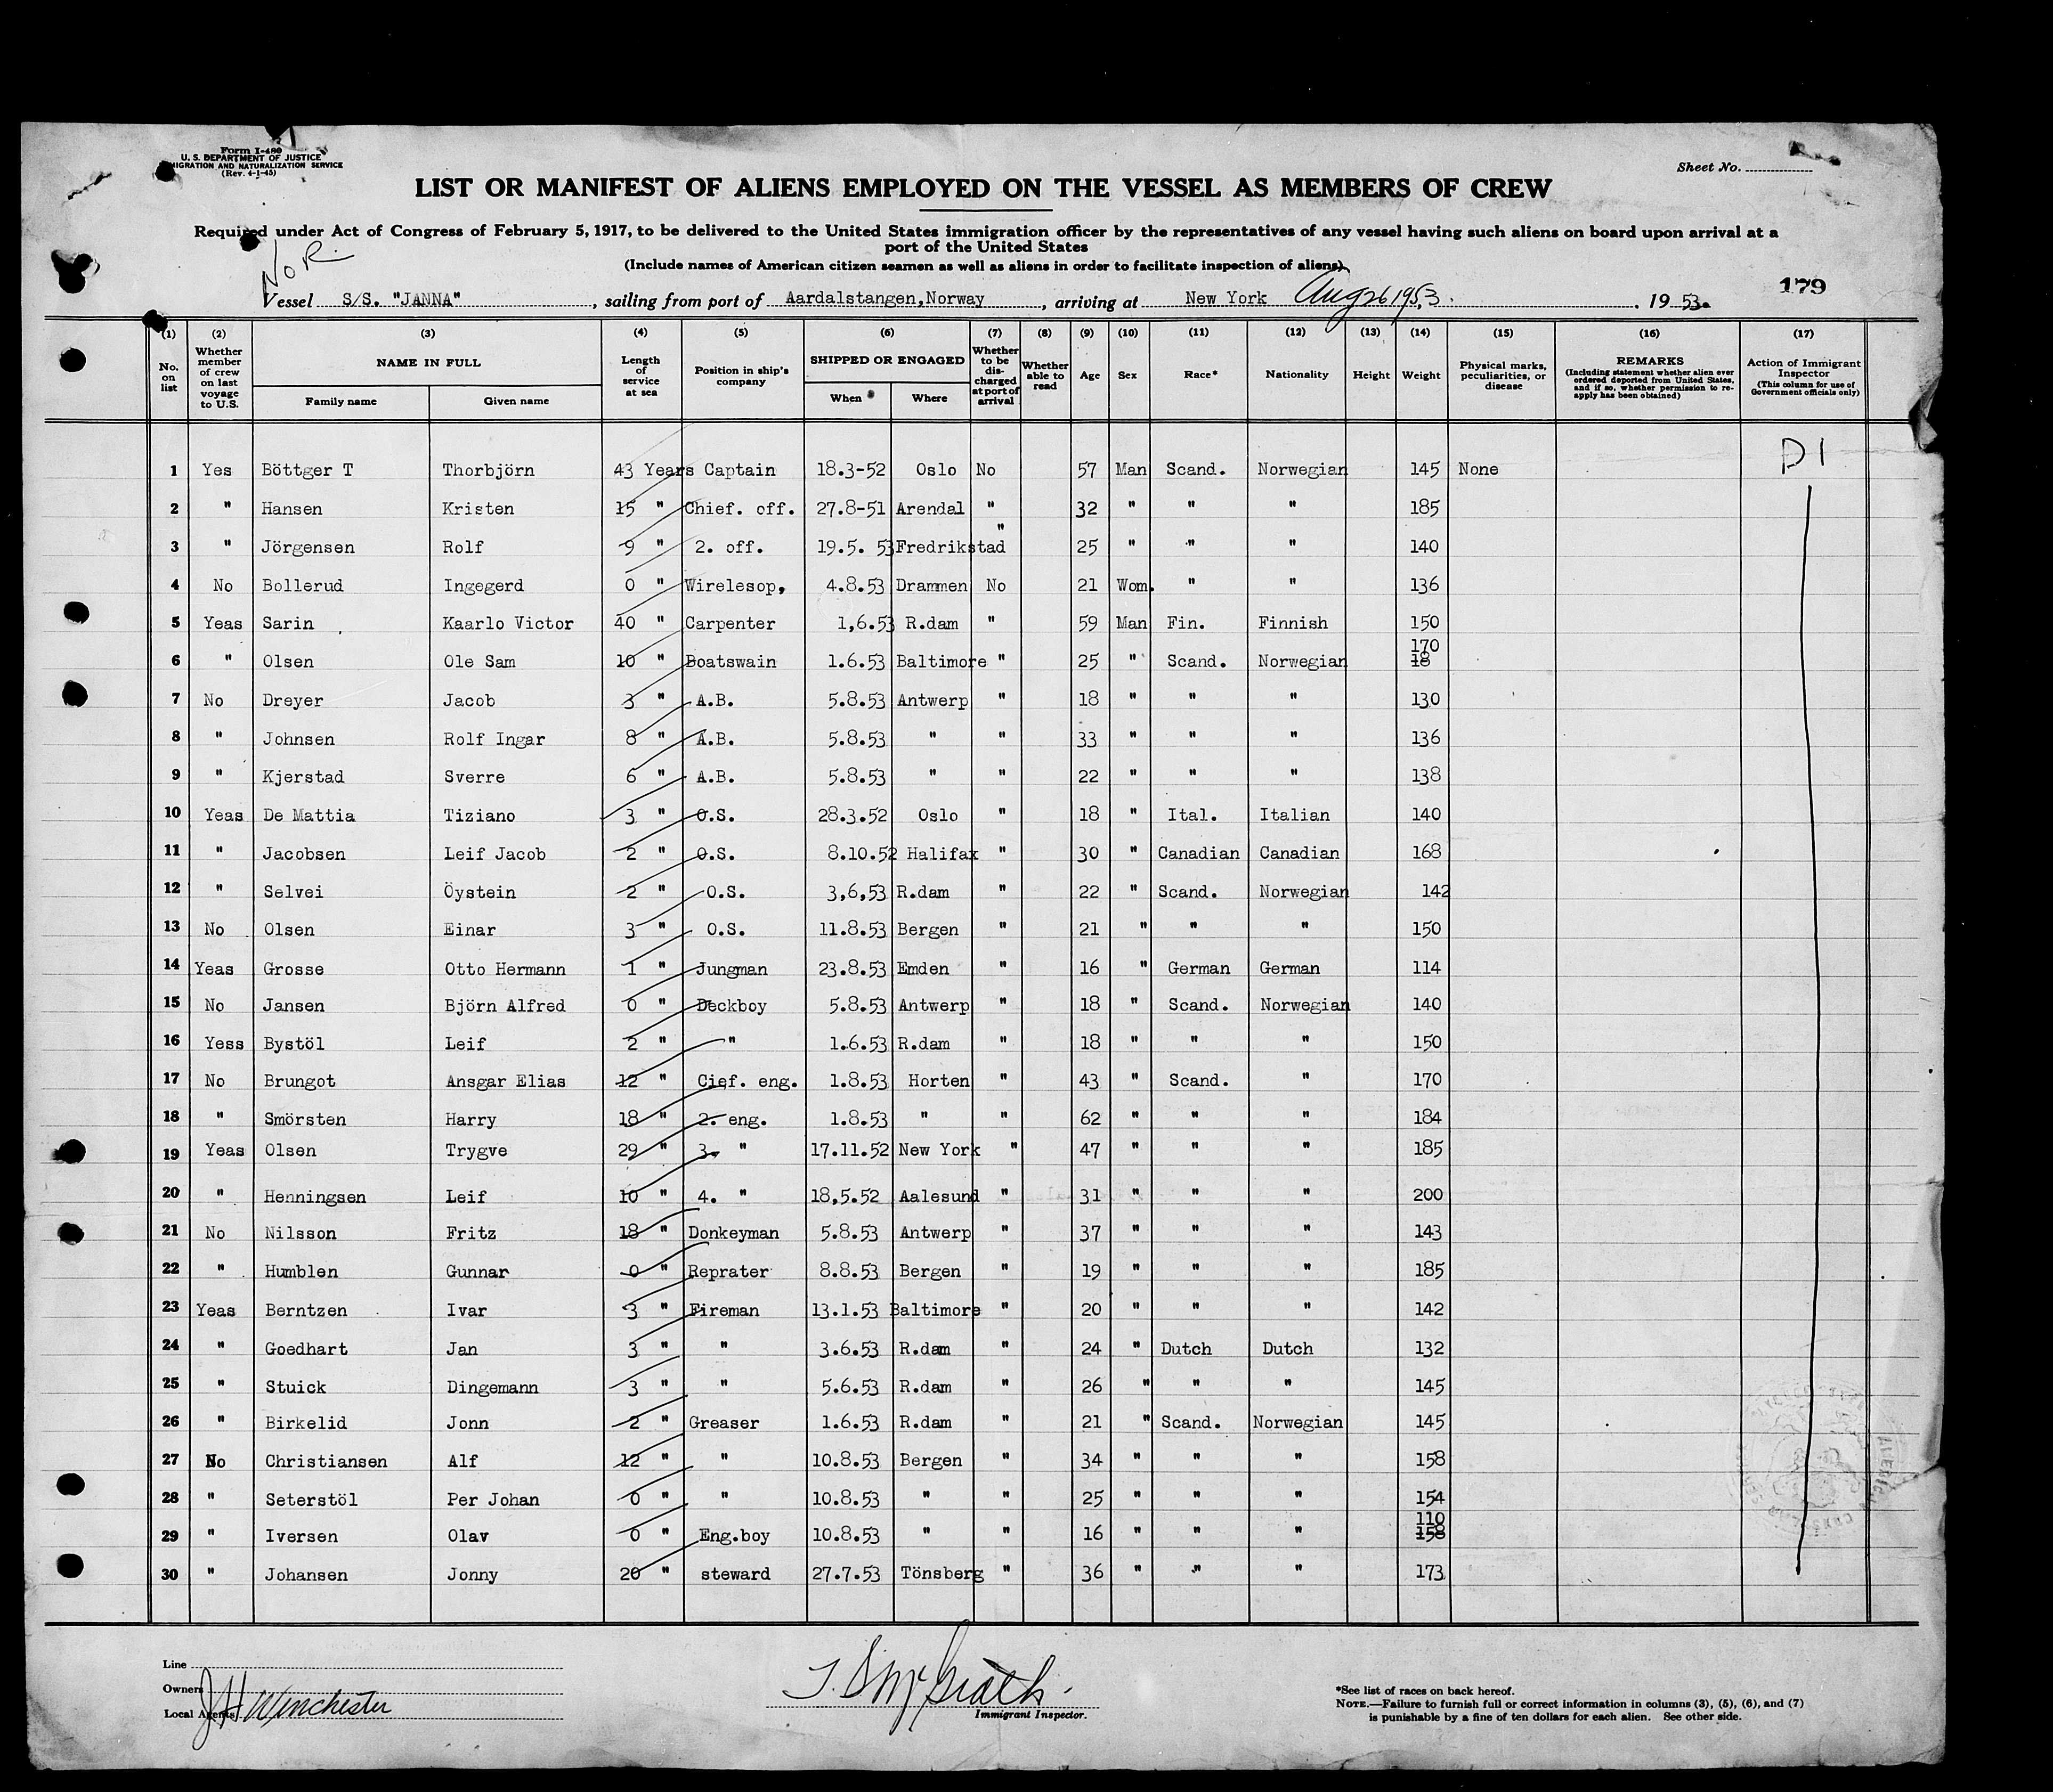 Form I-480
U. S. DEPARTMENT OF JUSTICE
MIGRATION AND NATURALIZATION SERVICE
(Rev. 4-1-45)
Sheet No.
LIST OR MANIFEST OF ALIENS EMPLOYED ON THE VESSEL AS MEMBERS OF CREW
Required under Act of Congress of February 5, 1917, to be delivered to the United States immigration officer by the representatives of any vessel having such aliens on board upon arrival at a
port of the United States
(Include names of American citizen seamen as well as aliens in order to facilitate inspection of aliens)
NOR
179
Vessel S/S. "JANNA" , sailing from port of Aardalstangen,Norway , arriving at New York Aug 26 1953. . 19 53.
(1) (2) (3) (4) (5) (6) (7) (8) (9) (10) (11) (12) (13) (14) (15) (16) (17)
No. on list Whether member of crew on last voyage to U.S. NAME IN FULL Family name Given name Length of service at sea Position in ship's company SHIPPED OR ENGAGED When Where Whether to be discharged at port of arrival Whether able to read Age Sex Race* Nationality Height Weight Physical marks, peculiarities, or disease REMARKS (Including statement whether alien ever ordered deported from United States, and if so, whether permission to reapply has been obtained) Action of Immigrant Inspector (This column for use of Government officials only)
D1
1 Yes Böttger T Thorbjörn 43 Years Captain 18.3-52 Oslo No 57 Man Scand. Norwegian 145 None
2 " Hansen Kristen 15 " Chief. off. 27.8-51 Arendal " 32 " " " 185
3 " Jörgensen Rolf 9 " 2. off. 19.5. 53 Fredrikstad " 25 " " " 140
4 No Bollerud Ingegerd 0 " Wirelesop, 4.8.53 Drammen No 21 Wom. " " 136
5 Yeas Sarin Kaarlo Victor 40 " Carpenter 1,6.53 R.dam " 59 Man Fin. Finnish 150
6 " Olsen Ole Sam 10 " Boatswain 1.6.53 Baltimore " 25 " Scand. Norwegian 170 18
7 No Dreyer Jacob 3 " A.B. 5.8.53 Antwerp " 18 " " " 130
8 " Johnsen Rolf Ingar 8 " A.B. 5.8.53 " " 33 " " " 136
9 " Kjerstad Sverre 6 " A.B. 5.8.53 " " 22 " " " 138
10 Yeas De Mattia Tiziano 3 " O.S. 28.3.52 Oslo " 18 " Ital. Italian 140
11 " Jacobsen Leif Jacob 2 " O.S. 8.10.52 Halifax " 30 " Canadian Canadian 168
12 " Selvei Öystein 2 " O.S. 3,6,53 R.dam " 22 " Scand. Norwegian 142
13 No Olsen Einar 3 " O.S. 11.8.53 Bergen " 21 " " " 150
14 Yeas Grosse Otto Hermann 1 " Jungman 23.8.53 Emden " 16 " German German 114
15 No Jansen Björn Alfred 0 " Deckboy 5.8.53 Antwerp " 18 " Scand. Norwegian 140
16 Yess Bystöl Leif 2 " " 1.6.53 R.dam " 18 " " " 150
17 No Brungot Ansgar Elias 12 " Cief. eng. 1.8.53 Horten " 43 " Scand. " 170
18 " Smörsten Harry 18 " 2. eng. 1.8.53 " " 62 " " " 184
19 Yeas Olsen Trygve 29 " 3. " 17.11.52 New York " 47 " " " 185
20 " Henningsen Leif 10 " 4. " 18,5.52 Aalesund " 31 " " " 200
21 No Nilsson Fritz 18 " Donkeyman 5.8.53 Antwerp " 37 " " " 143
22 " Humblen Gunnar 0 " Reprater 8.8.53 Bergen " 19 " " " 185
23 Yeas Berntzen Ivar 3 " Fireman 13.1.53 Baltimore " 20 " " " 142
24 " Goedhart Jan 3 " " 3.6.53 R.dam " 24 " Dutch Dutch 132
25 " Stuick Dingemann 3 " " 5.6.53 R.dam " 26 " " " 145
26 " Birkelid Jonn 2 " Greaser 1.6.53 R.dam " 21 " Scand. Norwegian 145
27 No Christiansen Alf 12 " " 10.8.53 Bergen " 34 " " " 158
28 " Seterstöl Per Johan 0 " " 10.8.53 " " 25 " " " 154
29 " Iversen Olav 0 " Eng.boy 10.8.53 " " 16 " " " 110 158
30 " Johansen Jonny 20 " steward 27.7.53 Tönsberg " 36 " " " 173
Line
Owners
Local Agents J H Winchester
T. S McGrath.
Immigrant Inspector.
*See list of races on back hereof.
NOTE.—Failure to furnish full or correct information in columns (3), (5), (6), and (7)
is punishable by a fine of ten dollars for each alien. See other side.